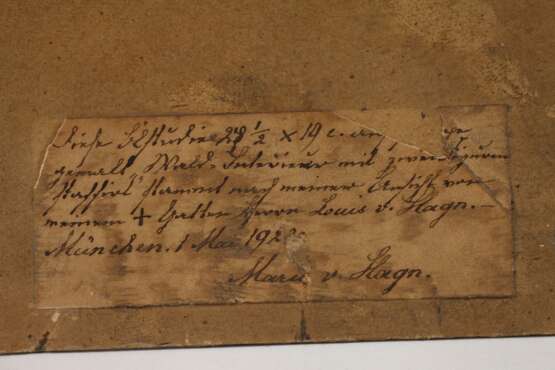 Diese Ölstudie 29 ½ × 19 c.
gemalt Wald-Interieur mit zwei Figuren
staffirt stammt nach meiner Ansicht von
meinem + Gatten Herrn Louis v. Hagn. –
München. 1 Mai 192
Marie v. Hagn.